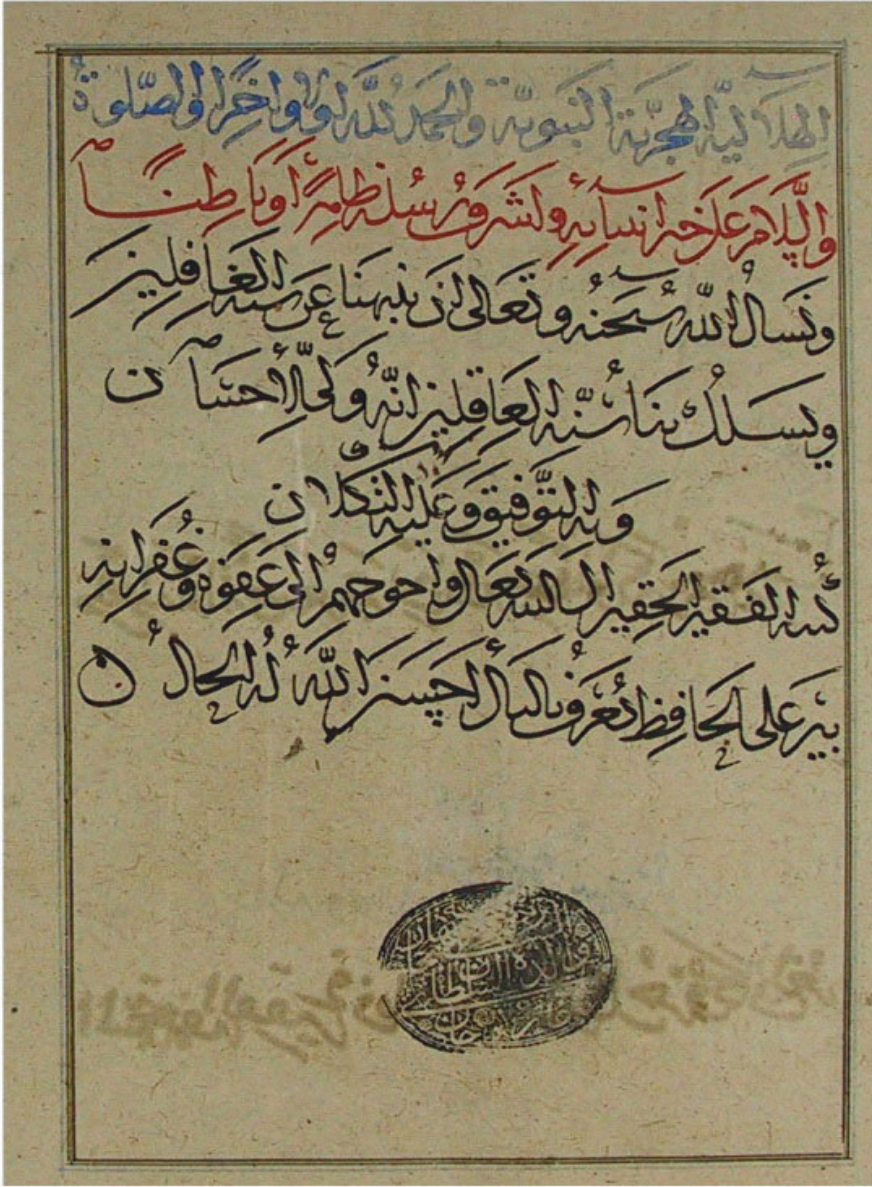 الهلالية الهجرية النبوية والحمد لله اولا واخرا والصلوة
والسلام على خير انبيائه واشرف رسله ظاهرا وباطنا
ونسأل الله سبحنه وتعالى ان ينبهنا عن سنة الغافلين
ويسلك بنا سنة العاقلين انه ولي الاحسان
وبه التوفيق وعليه التكلان
كتبه الفقير الحقير الى الله تعالى واحوجهم الى عفوه وغفرانه
بير على الحافظ تعرف بالبال احسن الله له الحال